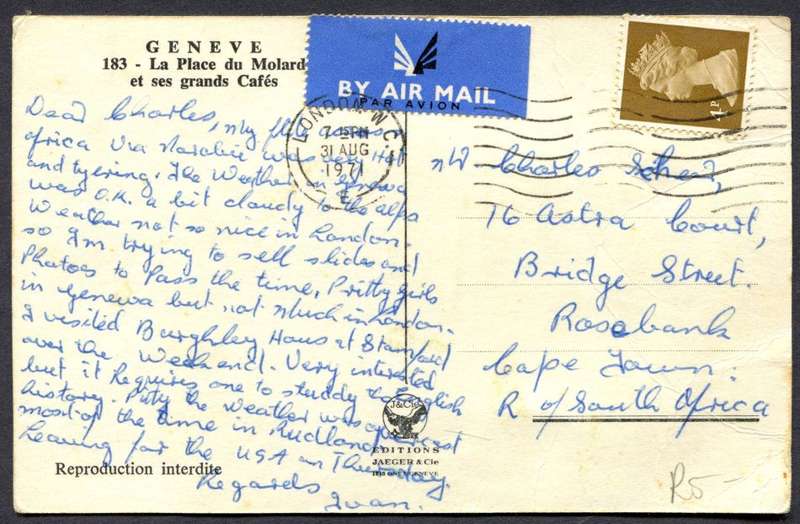 GENEVE
183 - La Place du Molard
et ses grands Cafés
BY AIR MAIL
PAR AVION
LONDON W.C.
7 15 PM
31 AUG
1971
E
1P
Dear Charles, My
Africa Via Nairobi was very Hot
and tyering. The Weather in Genewa
was O.K. a bit cloudy to the alps
Weather not so nice in London.
so Im trying to sell slides and
Photoes to Pass the time, Pritty girls
in Genewa but not Much in London.
I visited Burghley Hous at Stamford
over the Weekend. Very interested
but it Requires one to studdy English
history. Pity the Weather was
most of the time in Midland
Leaving for the USA on Thursday.
Regards
Ivan.
Mr Charles
76 Astra Court,
Bridge Street.
Rosebank
Cape Town.
R of South Africa
J&Cie
EDITIONS
JAEGER & Cie
GENEVE
Reproduction interdite
R5-